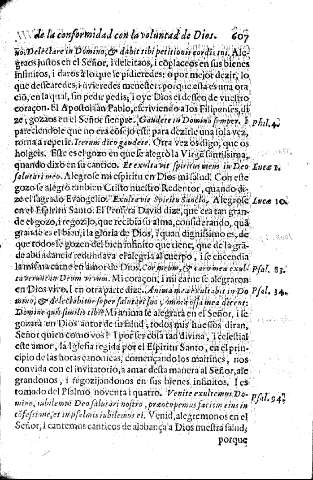 de la conformidad con la voluntad de Dios. 607
no. Delectare in Domino, & dabit tibi petitiones cordis tui. Ale-
graos justos en el Señor, i deleitaos, i cõplaceos en sus bienes
infinitos, i daros à lo que le pidieredes: o por mejor dezir, lo
que desearedes, i ovieredes menester: porque esta es una ora
ciõ, en la qual, sin pedir pedis, i oye Dios el desseo de vuestro
coraçon. El Apostol san Pablo, escriviendo a los Filipenses, di
ze; gozaos en el Señor siempre. Gaudete in Domino semper. I Phil. 4.
pareciendole que no era cõsejo este para dezirle una sola vez,
torna a repetir. Iterum dico gaudete. Otra vez os digo, que os
holgeis. Este es el gozo en que se alegrò la Virgẽ santissima,
quando dixo en su cantico. Et exultavit spiritus meus in Deo Lucæ 1.
salutari meo. Alegrose mi espiritu en Dios mi salud. Con este
gozo se alegrò tambien Cristo nuestro Redentor, quando di-
ze el sagrado Evangelio. Exultavit Spiritu Sancto, Alegrose Lucæ 10.
en el Espiritu Santo. El Profeta David dize, que era tan gran-
de el gozo, i regozijo, que recibia su alma, considerando, quã
grande es el bien, i la gloria de Dios, i quan dignissimo es, de
que todos se gozen del bien infinito que tiene, que de la grã-
de abũdancia redundava el alegria al cuerpo, i se encendia
la misma carne en amor de Dios. Cor meum, & caro mea exul- Psal. 83.
taverunt in Deum vivum. Mi coraçon, i mi carne se alegraron
en Dios vivo. I en otra parte dize. Anima mea exultabit in Do Psal. 34.
mino, & delectabitur super salutari suo, omnia ossa mea dicent:
Domine quis similis tibi? Mi anima se alegrarà en el Señor, i se
gozarà en Dios autor de su salud; todos mis huesos diran,
Señor quien como vos? I por ser cosa tan divina, i celestial
este amor, la Iglesia regida por el Espiritu Santo, en el prin-
cipio de las horas canonicas, començando los maitines, nos
convida con el invitatorio, a amar desta manera al Señor, ale
grandonos, i regozijandonos en sus bienes infinitos. I es
tomado del Psalmo noventa i quatro. Venite exultemus Do- Psal. 94.
mino, iubilemus Deo salutari nostro, præoccupemus faciem eius in
cõfessione, et in psalmis iubilemus ei. Venid, alegremonos en el
Señor, i cantemos canticos de alabança a Dios nuestra salud,
porque